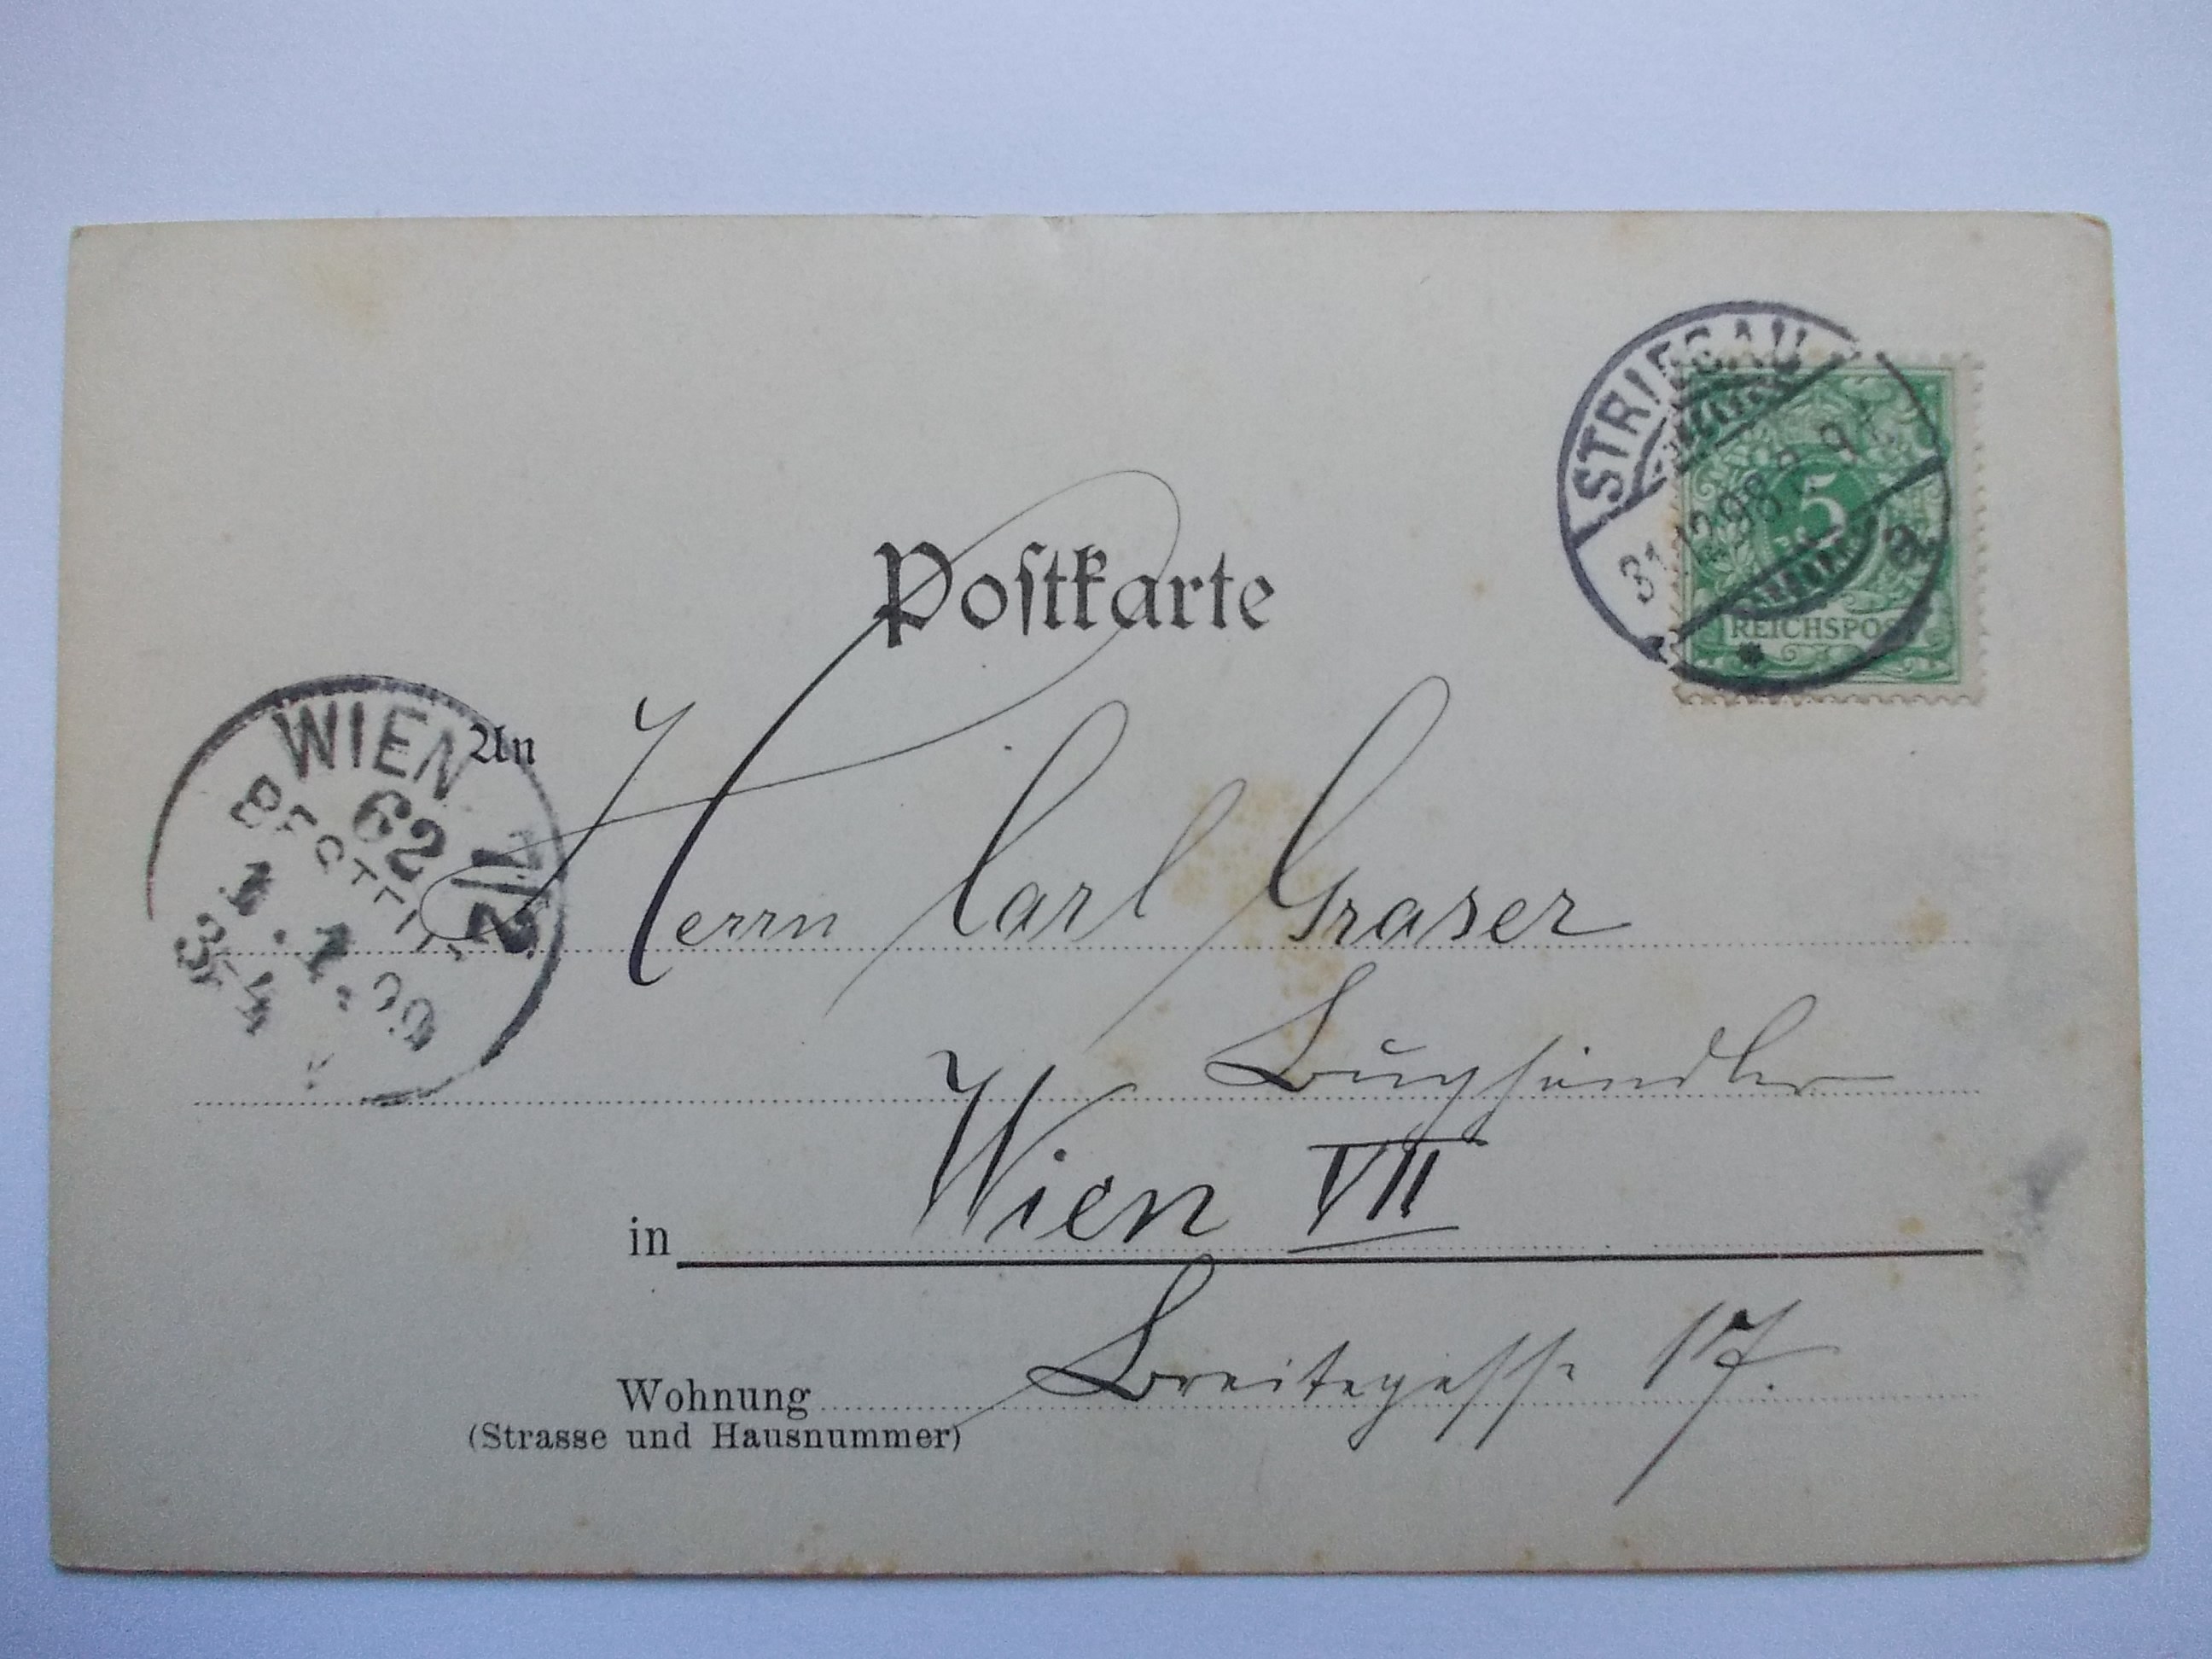 Postkarte
STRIEGAU
31.12.98
9
a
5
REICHSPOST
WIEN
62
7/2
BESTELLT
An
Herrn Carl Graser
Buchhändler
in Wien VII
Wohnung Breitegasse 17.
(Strasse und Hausnummer)